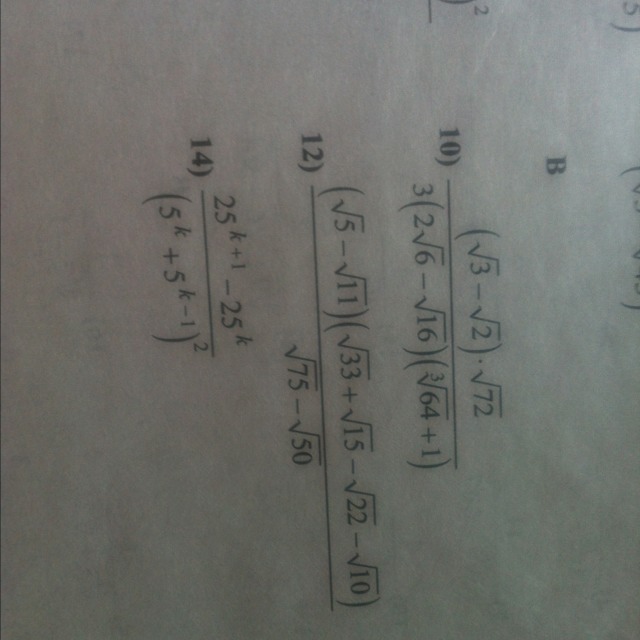 B
10) (√3 − √2)·√72
3(2√6 − √16)(³√64 + 1)
12) (√5 − √11)(√33 + √15 − √22 − √10)
√75 − √50
14) 25ᵏ⁺¹ − 25ᵏ
(5ᵏ + 5ᵏ⁻¹)²